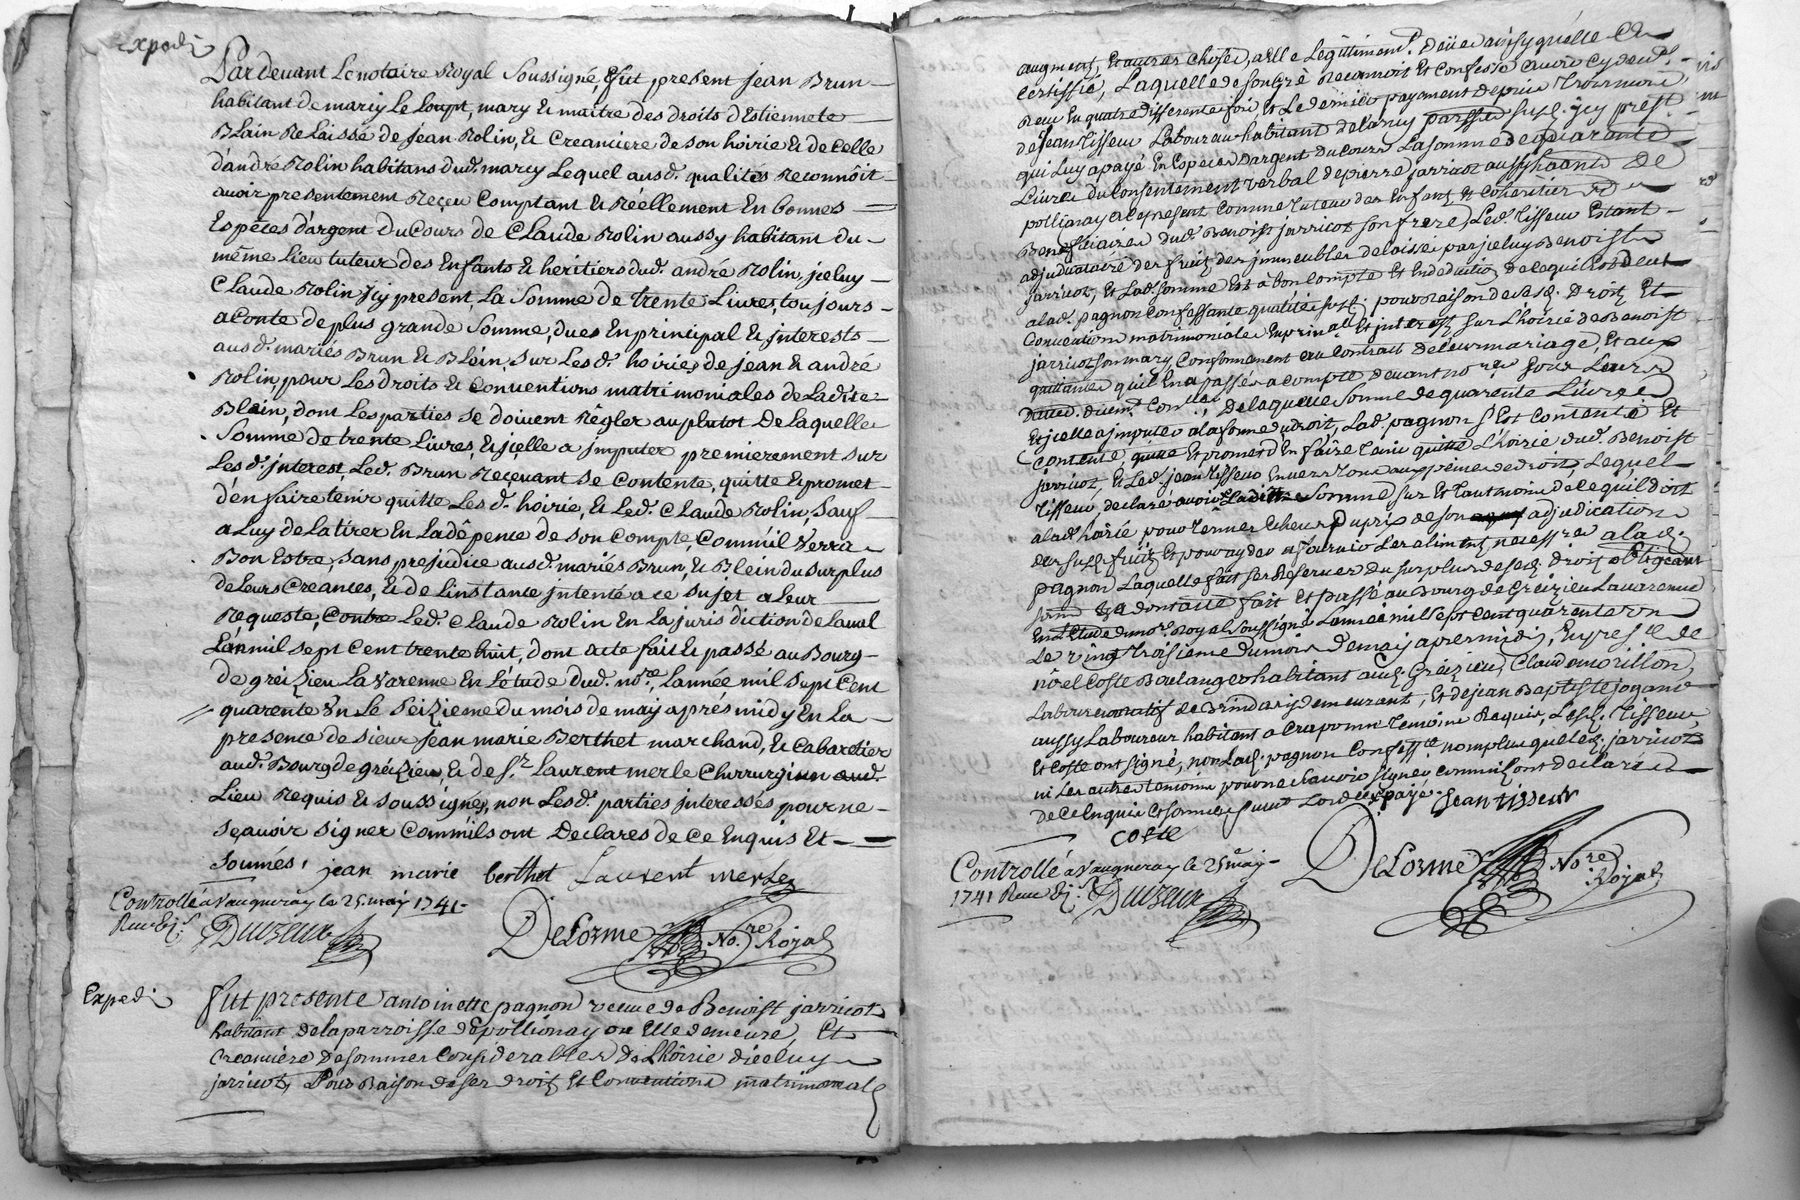 Expedi
Pardevant Le notaire Royal Soussigné, fut present jean Brun
habitant de marcy Le Loupt, mary & maitre des droits d'Estiennete
BLain Relaissée de jean Rolin, & creanciere de son hoirie & de celle
d'andré Rolin habitans dud. marcy Lequel ausd. qualités Reconnoit
avoir presentement Reçeu Comptant & Réellement En bonnes
Espéces d'argent Du Cours de CLaude Rolin aussy habitant du
même Lieu tuteur des Enfants & heritiers dud. andré Rolin, jceluy
CLaude Rolin Jcy present, La Somme de trente Livres, toujours
aconte de plus grande Somme, dues En principal & jnterests
ausd. mariés Brun & BLein, sur Lesd. hoiries de jean & andré
Rolin, pour Les droits & Conventions matrimoniales de Ladite
BLein, dont Les parties se doivent Régler au plutot De Laquelle
Somme de trente Livres, & jçelle a jmputer premierement sur
Lesd. jnterest, Led. Brun Reçevant se Contente, quitte & promet
d'en faire tenir quitte Lesd. hoirie, & Led. CLaude Rolin, Sauf
a Luy de La tirer En La dêpence de son Compte, Comm'il Verra
Bon Estre, sans prejudice ausd. mariés Brun, & BLein du surplus
de Leurs Creances, & de Linstance jntenté a ce sujet a Leur
Requeste, Contre Led. CLaude Rolin En La juris diction de Laval
L'an mil sept Cent trente huit, dont acte fait & passé au Bourg
de greizieu La Varenne En L'étude dud. nore, L'année mil sept Cent
quarente Un Le Seizieme du mois de may aprés midy En La
presence de sieur jean marie Berthet marchand, & Cabaretier
aud. Bourg de greizieu, & de sr. Laurent merle Chirurgien aud.
Lieu Requis & soussignés, non Lesd. parties jnteressés, pour ne
sçavoir signer Comm'ils ont Declares de Ce Enquis Et
Soumés, jean marie berthet Laurent merle
Controllé a Vaugneray le 25 may 1741
DeLorme No.re Royal
Expedi
fut presente antoinette pagnon veuve de Benoist jarricot
habitant de la parroisse de pollionay ou Elle demeure, Et
Creanciere de sommes Considerables de Lhôirie d'icéluy
jarricot, Pour Raison de ses droits Et Conventions matrimonialles
augment, Et autres choses, a Elle Legittiment. deüe ainsy quelle La
Certiffié, Laquelle de son gré Reconnoit Et Confesse avoir Cy devt.
Receu En quatre differente fois Et Le dernier payement depuis
de Jean Tisseur Laboureur habitant
qui Luy a payé En Espéces d'argent du Cours La somme de quarante
Livres du Consentement verbal de pierre jarricot aussy habitant de
pollionay a ce present Comme tuteur des Enfants Et Coheritiers
Beneficiaires dud. Benoist jarricot son frere, Led. Tisseur Estant
adjudicataire des fruits des jmmeubles delaissé par jceluy Benoist
jarricot, Et Lad. somme Est à bon Compte Et En deduction de ce quil Est deut
a lad. pagnon Confessante qualité susd. pour raison de sesd. droits Et
Conventions matrimoniales En prinal Et jnterest sur Lhoirie de Benoist
jarricot son mary, Conformement au Contrat de Leur mariage, Et aux
quittances quil En a passée a Compte devant
De laquelle somme de quarente Livres
Et jcelle a jmputer a la forme du droit, Lad. pagnon s'Est Contenté Et
Contente, quitte Et promet d'En faire tenir quitte L'hoirie dud. Benoist
jarricot, Et Led. jean Tisseur Envers tous aux peines de droit, Lequel
Tisseur, declare avoir Laditte Somme sur Et tant moins de ce quil doit
a lad. hoirie pour dernier Echeu du prix de son adjudication
des susd. fruits Et pour ayder a fournir Les aliments necessres a lad.
pagnon Laquelle fait ses Reserves du surplus de sesd. droits obligeant
dont acte fait Et passé au Bourg de Greizieu La varenne
En Létude du nore. Royal Soussigné L'année mil Sept Cent quarente Un
Le vingt troisieme du mois de may apres midi, En presce de
nöel Coste Boulanger habitant aud. Greizieu, Claude morillon
Laboureur de Brindas y demeurant, Et de jean Baptiste
aussy Laboureur habitant a Craponne Temoins Requis, Lesd. Tisseur
Et Coste ont signé, non Lad. pagnon Confessante non plus que Led. jarricot
ni Les autres temoins pour ne sçavoir signer comm'ils ont declaré
de Ce Enquis Et sommés jean tisseur
coste
Controllé a Vaugneray le 25 may
1741
DeLorme No.re Royal